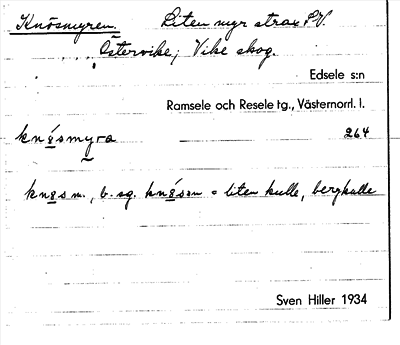 Knösmyren. Liten myr strax S.V.
Östervike; Vike skog.
Edsele s:n
Ramsele och Resele tg., Västernorrl. l.
knösmyra 264
knøs m., b. sg. knøsen = liten kulle, bergkulle
Sven Hiller 1934